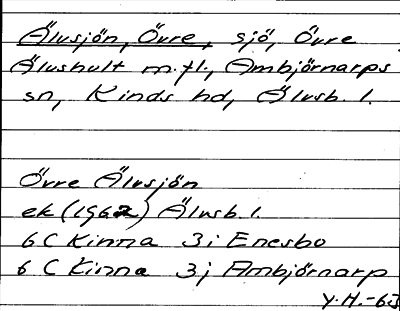 Älvsjön, Övre, sjö, Övre
Älvshult m.fl., Ambjörnarps
sn, Kinds hd, Älvsb. l.
Övre Älvsjön
ek (1962) Älvsb. l.
6 C Kinna 3i Enesbo
6 C Kinna 3j Ambjörnarp
Y.H.-63